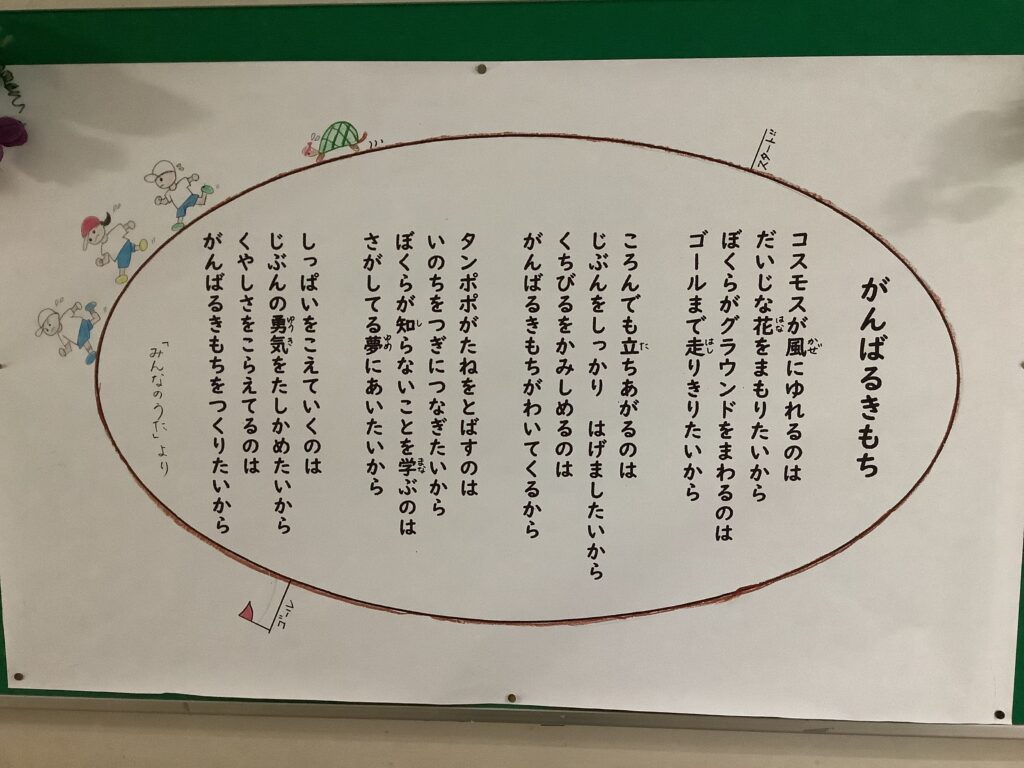 がんばるきもち
コスモスが風にゆれるのは
だいじな花をまもりたいから
ぼくらがグラウンドをまわるのは
ゴールまで走りきりたいから
ころんでも立ちあがるのは
じぶんをしっかり　はげましたいから
くちびるをかみしめるのは
がんばるきもちがわいてくるから
タンポポがたねをとばすのは
いのちをつぎにつなぎたいから
ぼくらが知らないことを学ぶのは
さがしてる夢にあいたいから
しっぱいをこえていくのは
じぶんの勇気をたしかめたいから
くやしさをこらえてるのは
がんばるきもちをつくりたいから
「みんなのうた」より
スタート
ゴール